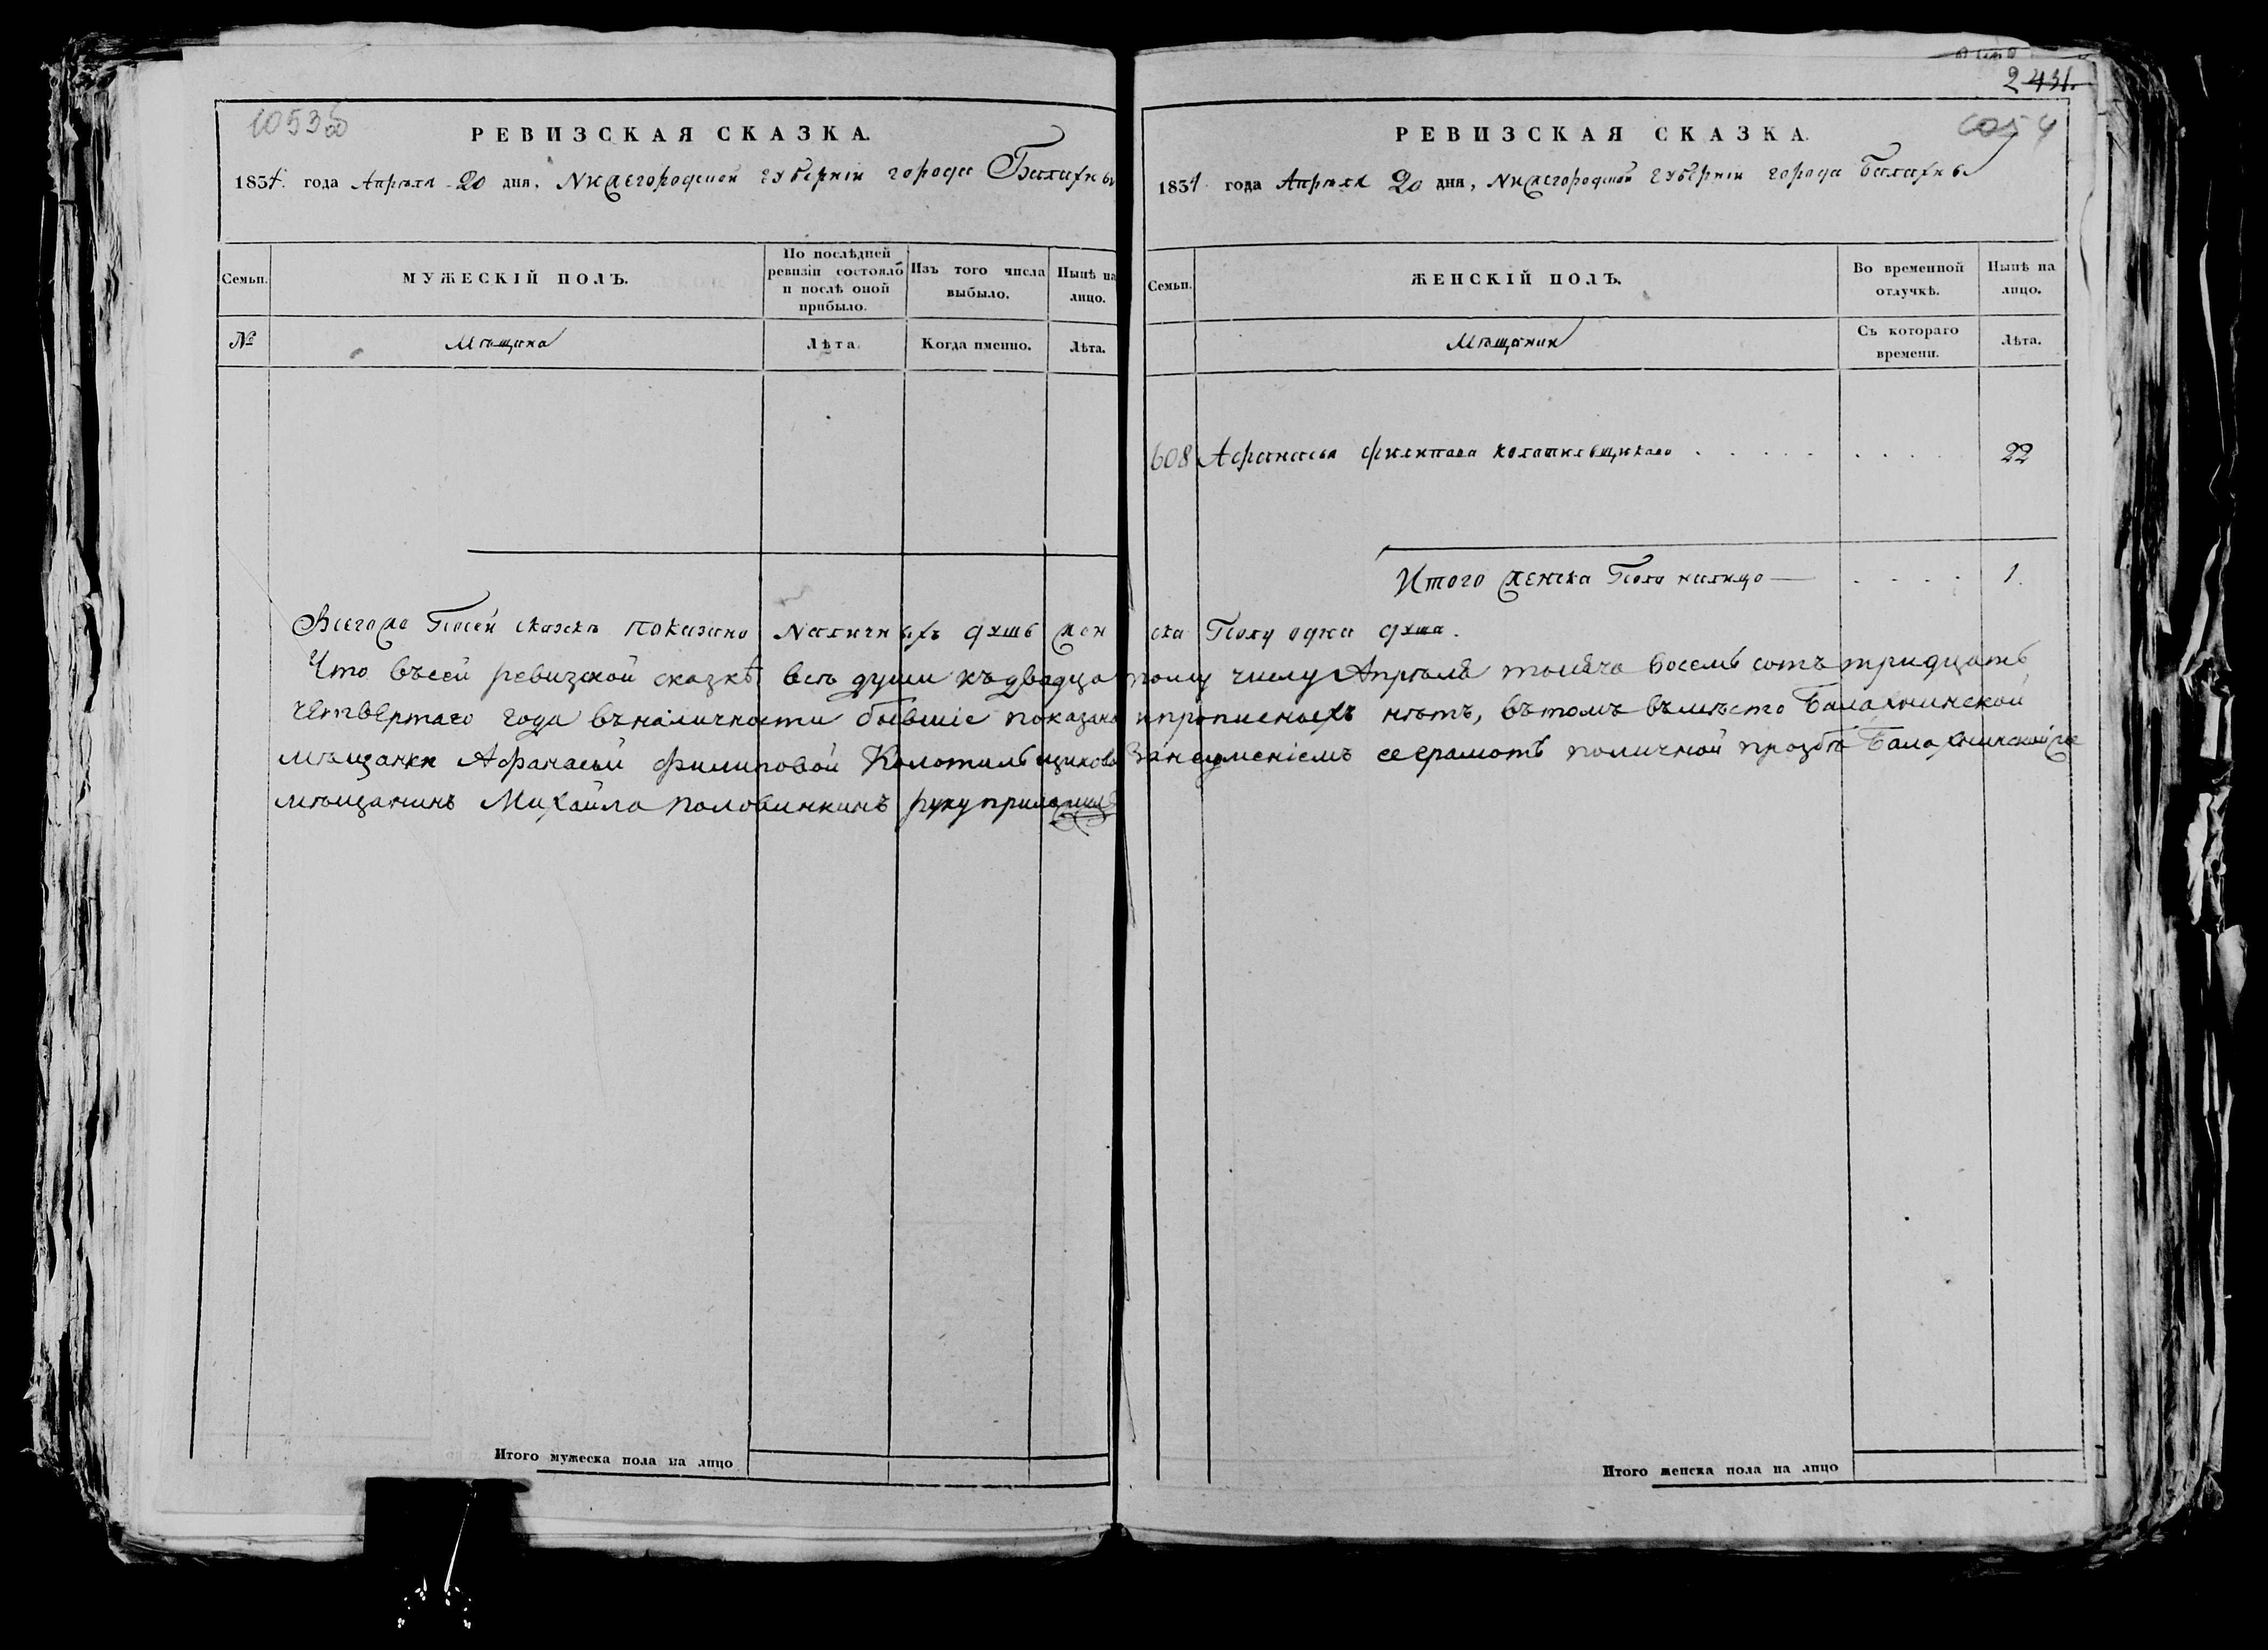 2431.
1053 об
РЕВИЗСКАЯ СКАЗКА.
1834. года Апреля 20 дня, Нижегородской губернии города Балахны
Семьи.
МУЖЕСКІЙ ПОЛЪ.
По послѣдней ревизіи состояло и послѣ оной прибыло.
Изъ того числа выбыло.
Нынѣ на лицо.
№
Мѣщана
Лѣта.
Когда именно.
Лѣта.
РЕВИЗСКАЯ СКАЗКА.
1054
1834 года Апреля 20 дня, Нижегородской губернии города Балахны
Семьи.
ЖЕНСКІЙ ПОЛЪ.
Во временной отлучкѣ.
Нынѣ на лицо.
Мѣщанин
Съ котораго времени.
Лѣта.
608 Афанасья Филипава Колатильщикаво . . . . . . . . . . 22
Итого женска Пола налицо — . . . . 1.
Всегоже Посей сказкѣ показано Наличныхъ душъ женска Полу одна душа.
Что въсей ревизской сказкѣ всѣ души къдвадцатому числу Апрѣля тысяча восемь сотъ тридцать
четвертаго года въналичности бывшіе показаны ипрописныхъ нѣтъ, вътомъ вместо Балахнинской
мѣщанки Афанасьи Филиповой Колотильщиково занеумениемъ ееграмотѣ поличной прозбѣ Балахнинскойже
мѣщанинъ Михайла Половинкинъ руку приложилъ
Итого мужеска пола на лицо
Итого женска пола на лицо